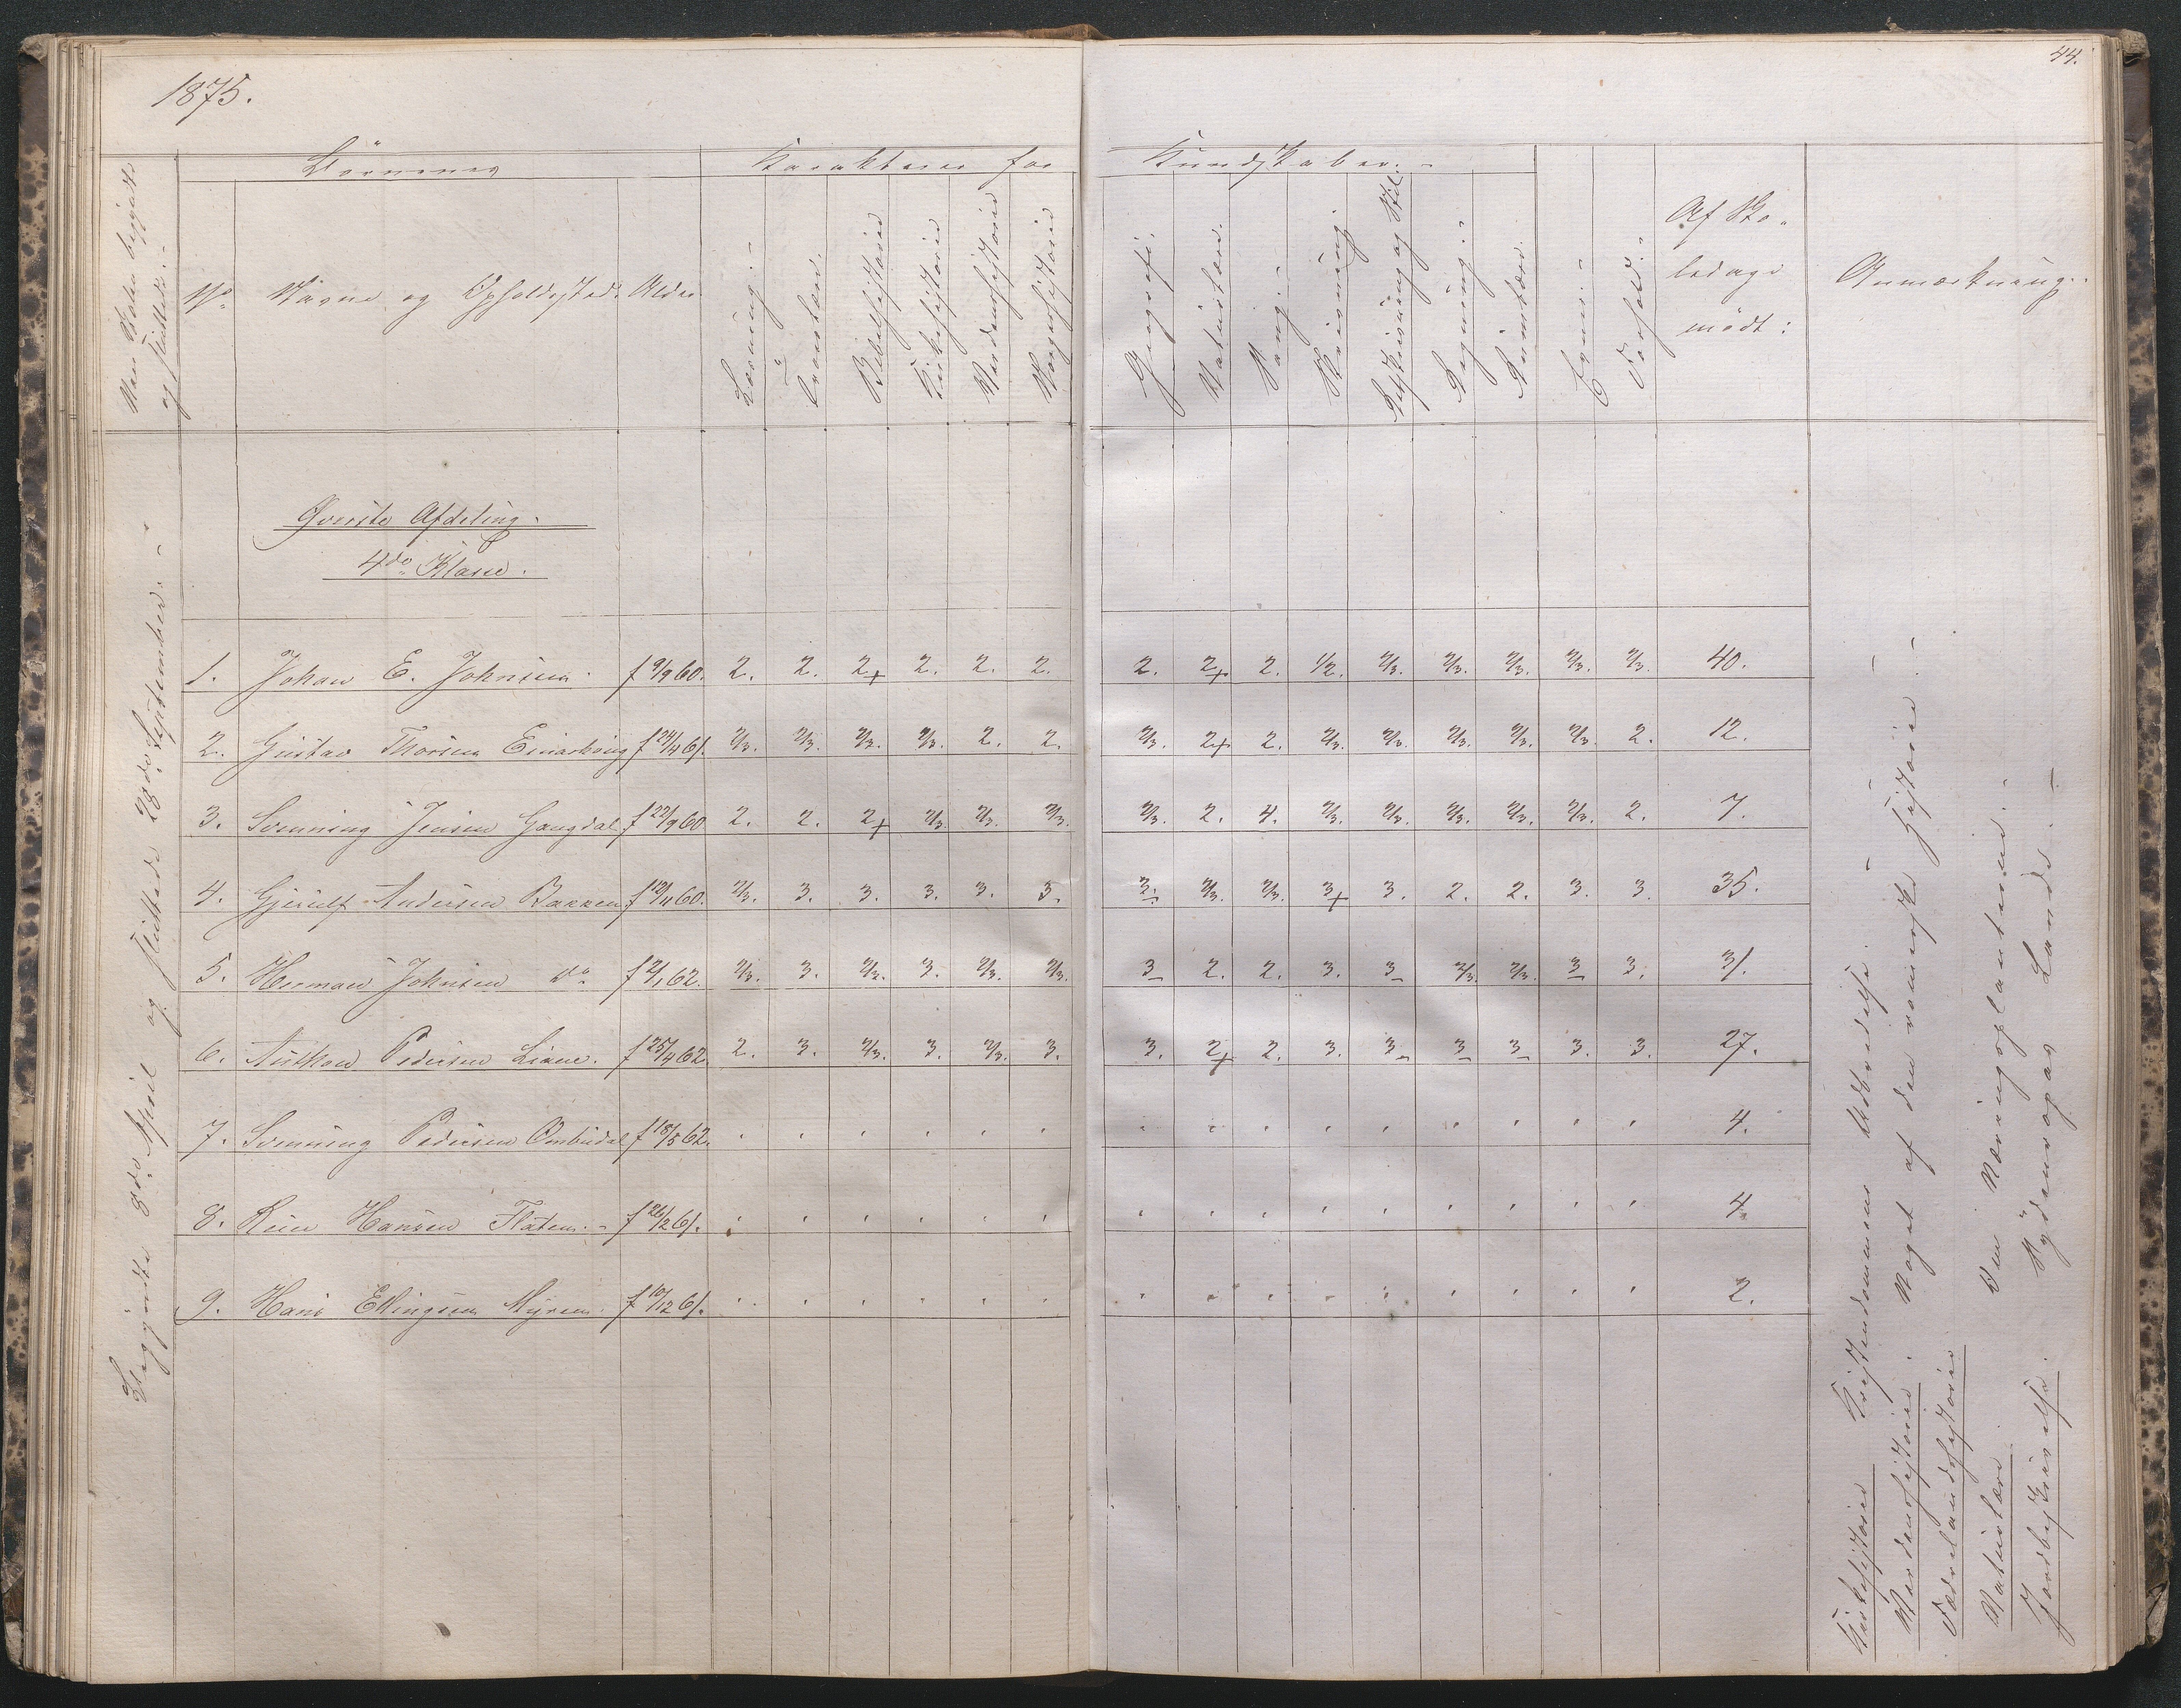 1875.
44.
Börnenes
Karakterer for
Kundskaber. -
Naar Skolen begyndte
og sluttede. -
No.
Navne og Opholdssted.
Alder
Læsning. -
Troeslære.
Bibelhistorie
Kirkehistorie
Verdenshistorie
Norgeshistorie
Geografi.
Naturlære.
Sang. -
Skrivning.
Retskrivning og Stil.
Regning. -
Rumlære.
Evne. -
Forhold. -
Af Sko-
ledage
mödt:
Anmærkning. -
Begyndte 8de April og sluttede 28de September. -
Øverste Afdeling.
4de Klasse.
1. Johan E. Johnsen. f 9/9 60. 2. 2. 2+ 2. 2. 2. 2. 2+ 2. 1/2. 2/3. 2/3. 2/3. 2/3. 2/3. 40.
2. Gustav Thorsen Einarhoug f 24/4 61. 2/3. 2/3. 2/3. 2/3. 2. 2. 2/3. 2+ 2. 2/3. 2/3. 2/3. 2/3. 2/3. 2. 12.
3. Svenning Jensen Gangdal f 22/9 60 2. 2. 2+ 2/3. 2/3. 2/3. 2/3. 2. 4. 2/3. 2/3. 2/3. 2/3. 2/3. 2. 7.
4. Gjerulf Andersen Bakken f 12/4 60. 2/3. 3. 3. 3. 3. 3. 3. 2/3. 2/3. 3+ 3. 2. 2. 3. 3. 35.
5. Herman Johnsen do f 2/1 62. 2/3. 3. 2/3. 3. 2/3. 2/3. 3 2. 2. 3. 3 2/3. 2/3. 3 3. 31.
6. Pedersen Liane. f 25/4 62. 2. 3. 2/3. 3. 2/3. 3. 3. 2+ 2. 3. 3 3 3 3. 3. 27.
7. Svenning Pedersen Ombudal f 18/5 62. 4.
8. Hansen Flaten. - f 26/2 61. 4.
9. Hans Ellingsen Myren. f 10/12 61. 2.
Kirkehistorie Kristendommens Udbredelse. -
Verdenshistorie. Noget af den romerske Historie. -
Fædrelandshistorie
Naturlære. Om Næringsplanterne. -
Jordbeskrivelse. Sydeuropas Lande. -